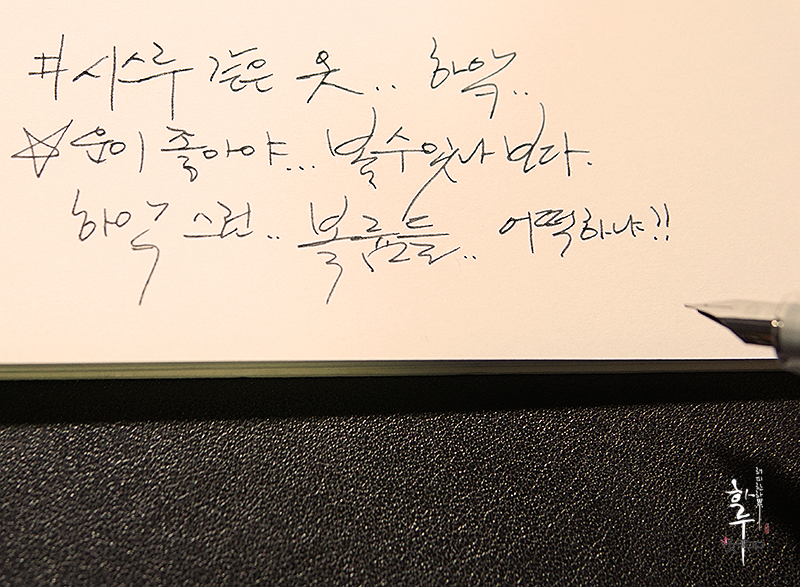 #시스루 같은 옷.. 하악..
☆운이 좋아야... 볼수있나 보다.
하악 스런.. 볼륨들.. 어떡하냐!!
하루